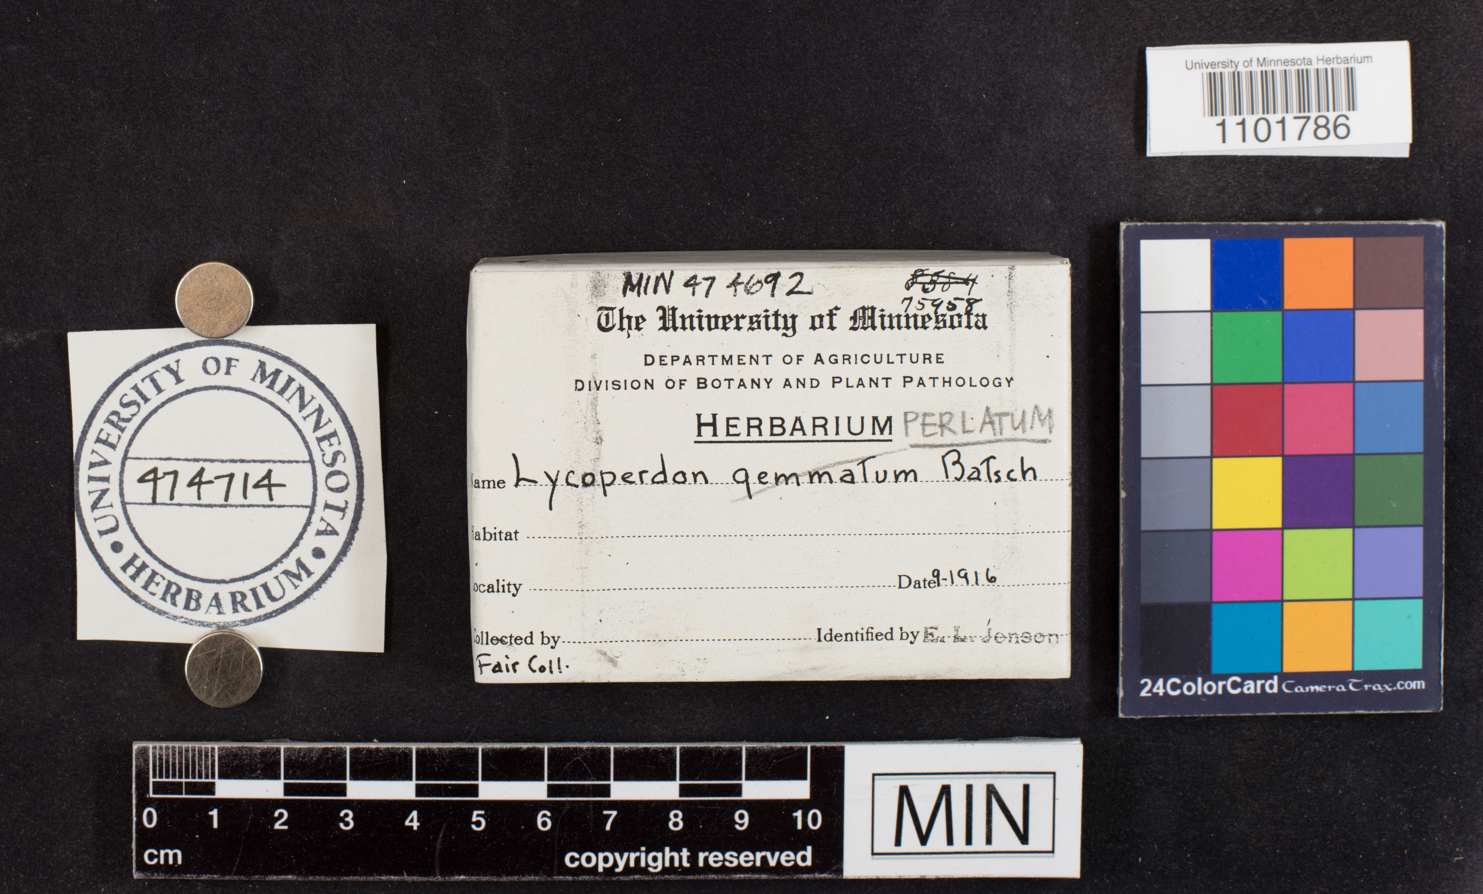 University of Minnesota Herbarium
1101786
UNIVERSITY OF MINNESOTA
HERBARIUM
474714
MIN 474692
75958
The University of Minnesota
DEPARTMENT OF AGRICULTURE
DIVISION OF BOTANY AND PLANT PATHOLOGY
HERBARIUM PERLATUM
ame Lycoperdon gemmatum Batsch
abitat
ocality Date 9-1916
ollected by Identified by E. L. Jenson
Fair Coll.
24ColorCard CameraTrax.com
0 1 2 3 4 5 6 7 8 9 10
cm copyright reserved
MIN